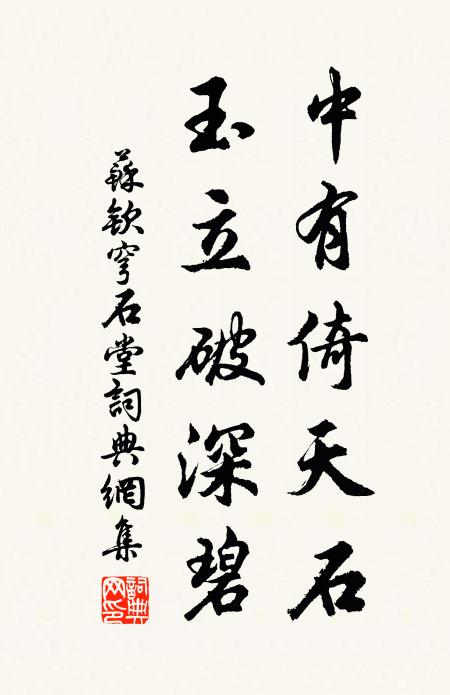 中有倚天石
玉立破深碧
蘇欽穹石堂詞典網集
詞典網印